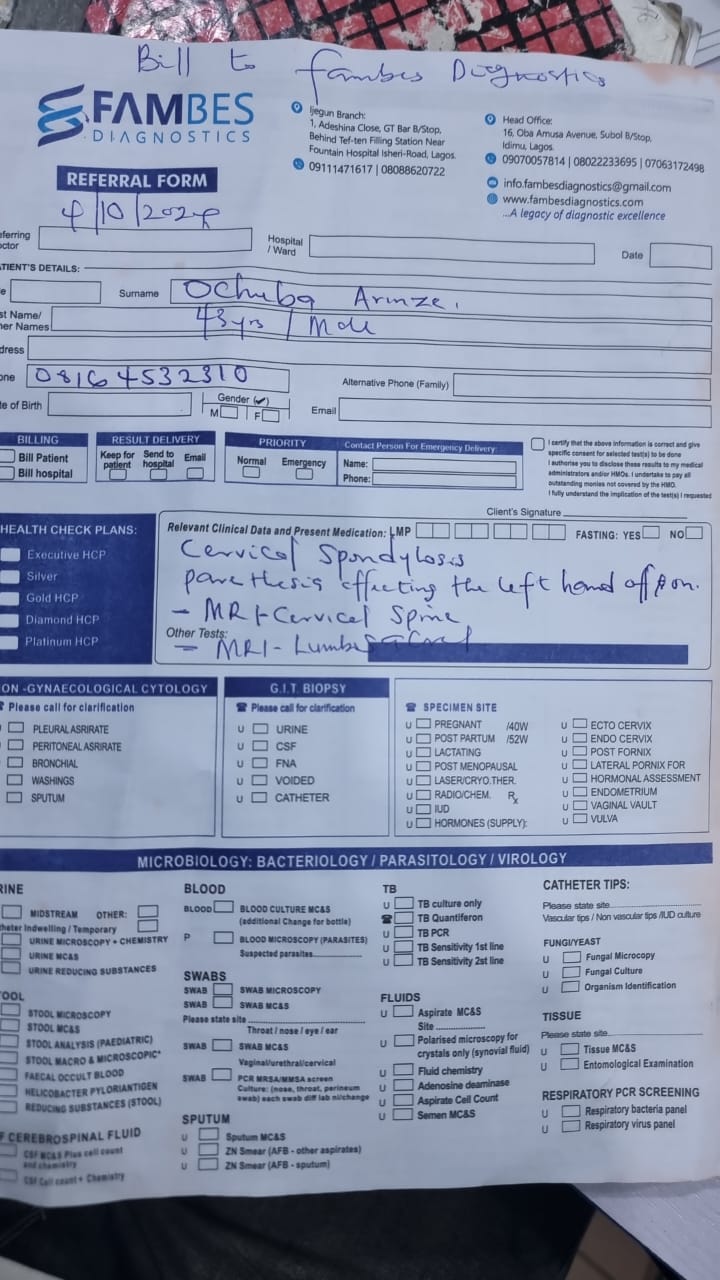 Bill to fambes Diagnostics
FAMBES
DIAGNOSTICS
Ijegun Branch:
1, Adeshina Close, GT Bar B/Stop,
Behind Tef-ten Filling Station Near
Fountain Hospital Isheri-Road, Lagos.
09111471617 | 08088620722
Head Office:
16, Oba Amusa Avenue, Subol B/Stop,
Idimu, Lagos.
09070057814 | 08022233695 | 07063172498
info.fambesdiagnostics@gmail.com
www.fambesdiagnostics.com
...A legacy of diagnostic excellence
REFERRAL FORM
4/10/2024
eferring
ctor
Hospital
/ Ward
Date
ATIENT'S DETAILS:
e
Surname Ochuba Arinze.
st Name/
her Names 43yrs / Male
dress
one 08164532310
Alternative Phone (Family)
te of Birth
Gender (✓)
M F
Email
BILLING
Bill Patient
Bill hospital
RESULT DELIVERY
Keep for patient Send to hospital Email
PRIORITY
Normal Emergency
Contact Person For Emergency Delivery:
Name:
Phone:
I certify that the above information is correct and give
specific consent for selected test(s) to be done
I authorise you to disclose these results to my medical
administrators and/or HMOs. I undertake to pay all
outstanding monies not covered by the HMO.
I fully understand the implication of the test(s) I requested
Client's Signature
HEALTH CHECK PLANS:
Executive HCP
Silver
Gold HCP
Diamond HCP
Platinum HCP
Relevant Clinical Data and Present Medication: LMP FASTING: YES NO
Cervical Spondylosis
parethesis affecting the left hand off & on.
- MRI-Cervical Spine
Other Tests:
- MRI-Lumbosacral
ON -GYNAECOLOGICAL CYTOLOGY
Please call for clarification
PLEURAL ASRIRATE
PERITONEAL ASRIRATE
BRONCHIAL
WASHINGS
SPUTUM
G.I.T. BIOPSY
Please call for clarification
U URINE
U CSF
U FNA
U VOIDED
U CATHETER
SPECIMEN SITE
U PREGNANT /40W
U POST PARTUM /52W
U LACTATING
U POST MENOPAUSAL
U LASER/CRYO.THER.
U RADIO/CHEM. Rx
U IUD
U HORMONES (SUPPLY):
U ECTO CERVIX
U ENDO CERVIX
U POST FORNIX
U LATERAL PORNIX FOR
U HORMONAL ASSESSMENT
U ENDOMETRIUM
U VAGINAL VAULT
U VULVA
MICROBIOLOGY: BACTERIOLOGY / PARASITOLOGY / VIROLOGY
RINE
MIDSTREAM OTHER:
theter Indwelling / Temporary
URINE MICROSCOPY + CHEMISTRY
URINE MC&S
URINE REDUCING SUBSTANCES
TOOL
STOOL MICROSCOPY
STOOL MC&S
STOOL ANALYSIS (PAEDIATRIC)
STOOL MACRO & MICROSCOPIC*
FAECAL OCCULT BLOOD
HELICOBACTER PYLORIANTIGEN
REDUCING SUBSTANCES (STOOL)
F CEREBROSPINAL FLUID
CSF MC&S Plus cell count
and chemistry
CSF Cell count + Chemistry
BLOOD
BLOOD BLOOD CULTURE MC&S
(additional Change for bottle)
P BLOOD MICROSCOPY (PARASITES)
Suspected parasites
SWABS
SWAB SWAB MICROSCOPY
SWAB SWAB MC&S
Please state site
Throat / nose / eye / ear
SWAB SWAB MC&S
Vaginal/urethral/cervical
SWAB PCR MRSA/MMSA screen
Culture: (nose, throat, perineum
swab) each swab diff lab nl/change
SPUTUM
U Sputum MC&S
U ZN Smear (AFB - other aspirates)
U ZN Smear (AFB - sputum)
TB
U TB culture only
TB Quantiferon
U TB PCR
U TB Sensitivity 1st line
U TB Sensitivity 2st line
FLUIDS
U Aspirate MC&S
Site
U Polarised microscopy for
crystals only (synovial fluid)
U Fluid chemistry
U Adenosine deaminase
U Aspirate Cell Count
U Semen MC&S
CATHETER TIPS:
Please state site
Vascular tips / Non vascular tips /IUD culture
FUNGI/YEAST
U Fungal Microcopy
U Fungal Culture
U Organism Identification
TISSUE
Please state site
U Tissue MC&S
U Entomological Examination
RESPIRATORY PCR SCREENING
U Respiratory bacteria panel
U Respiratory virus panel